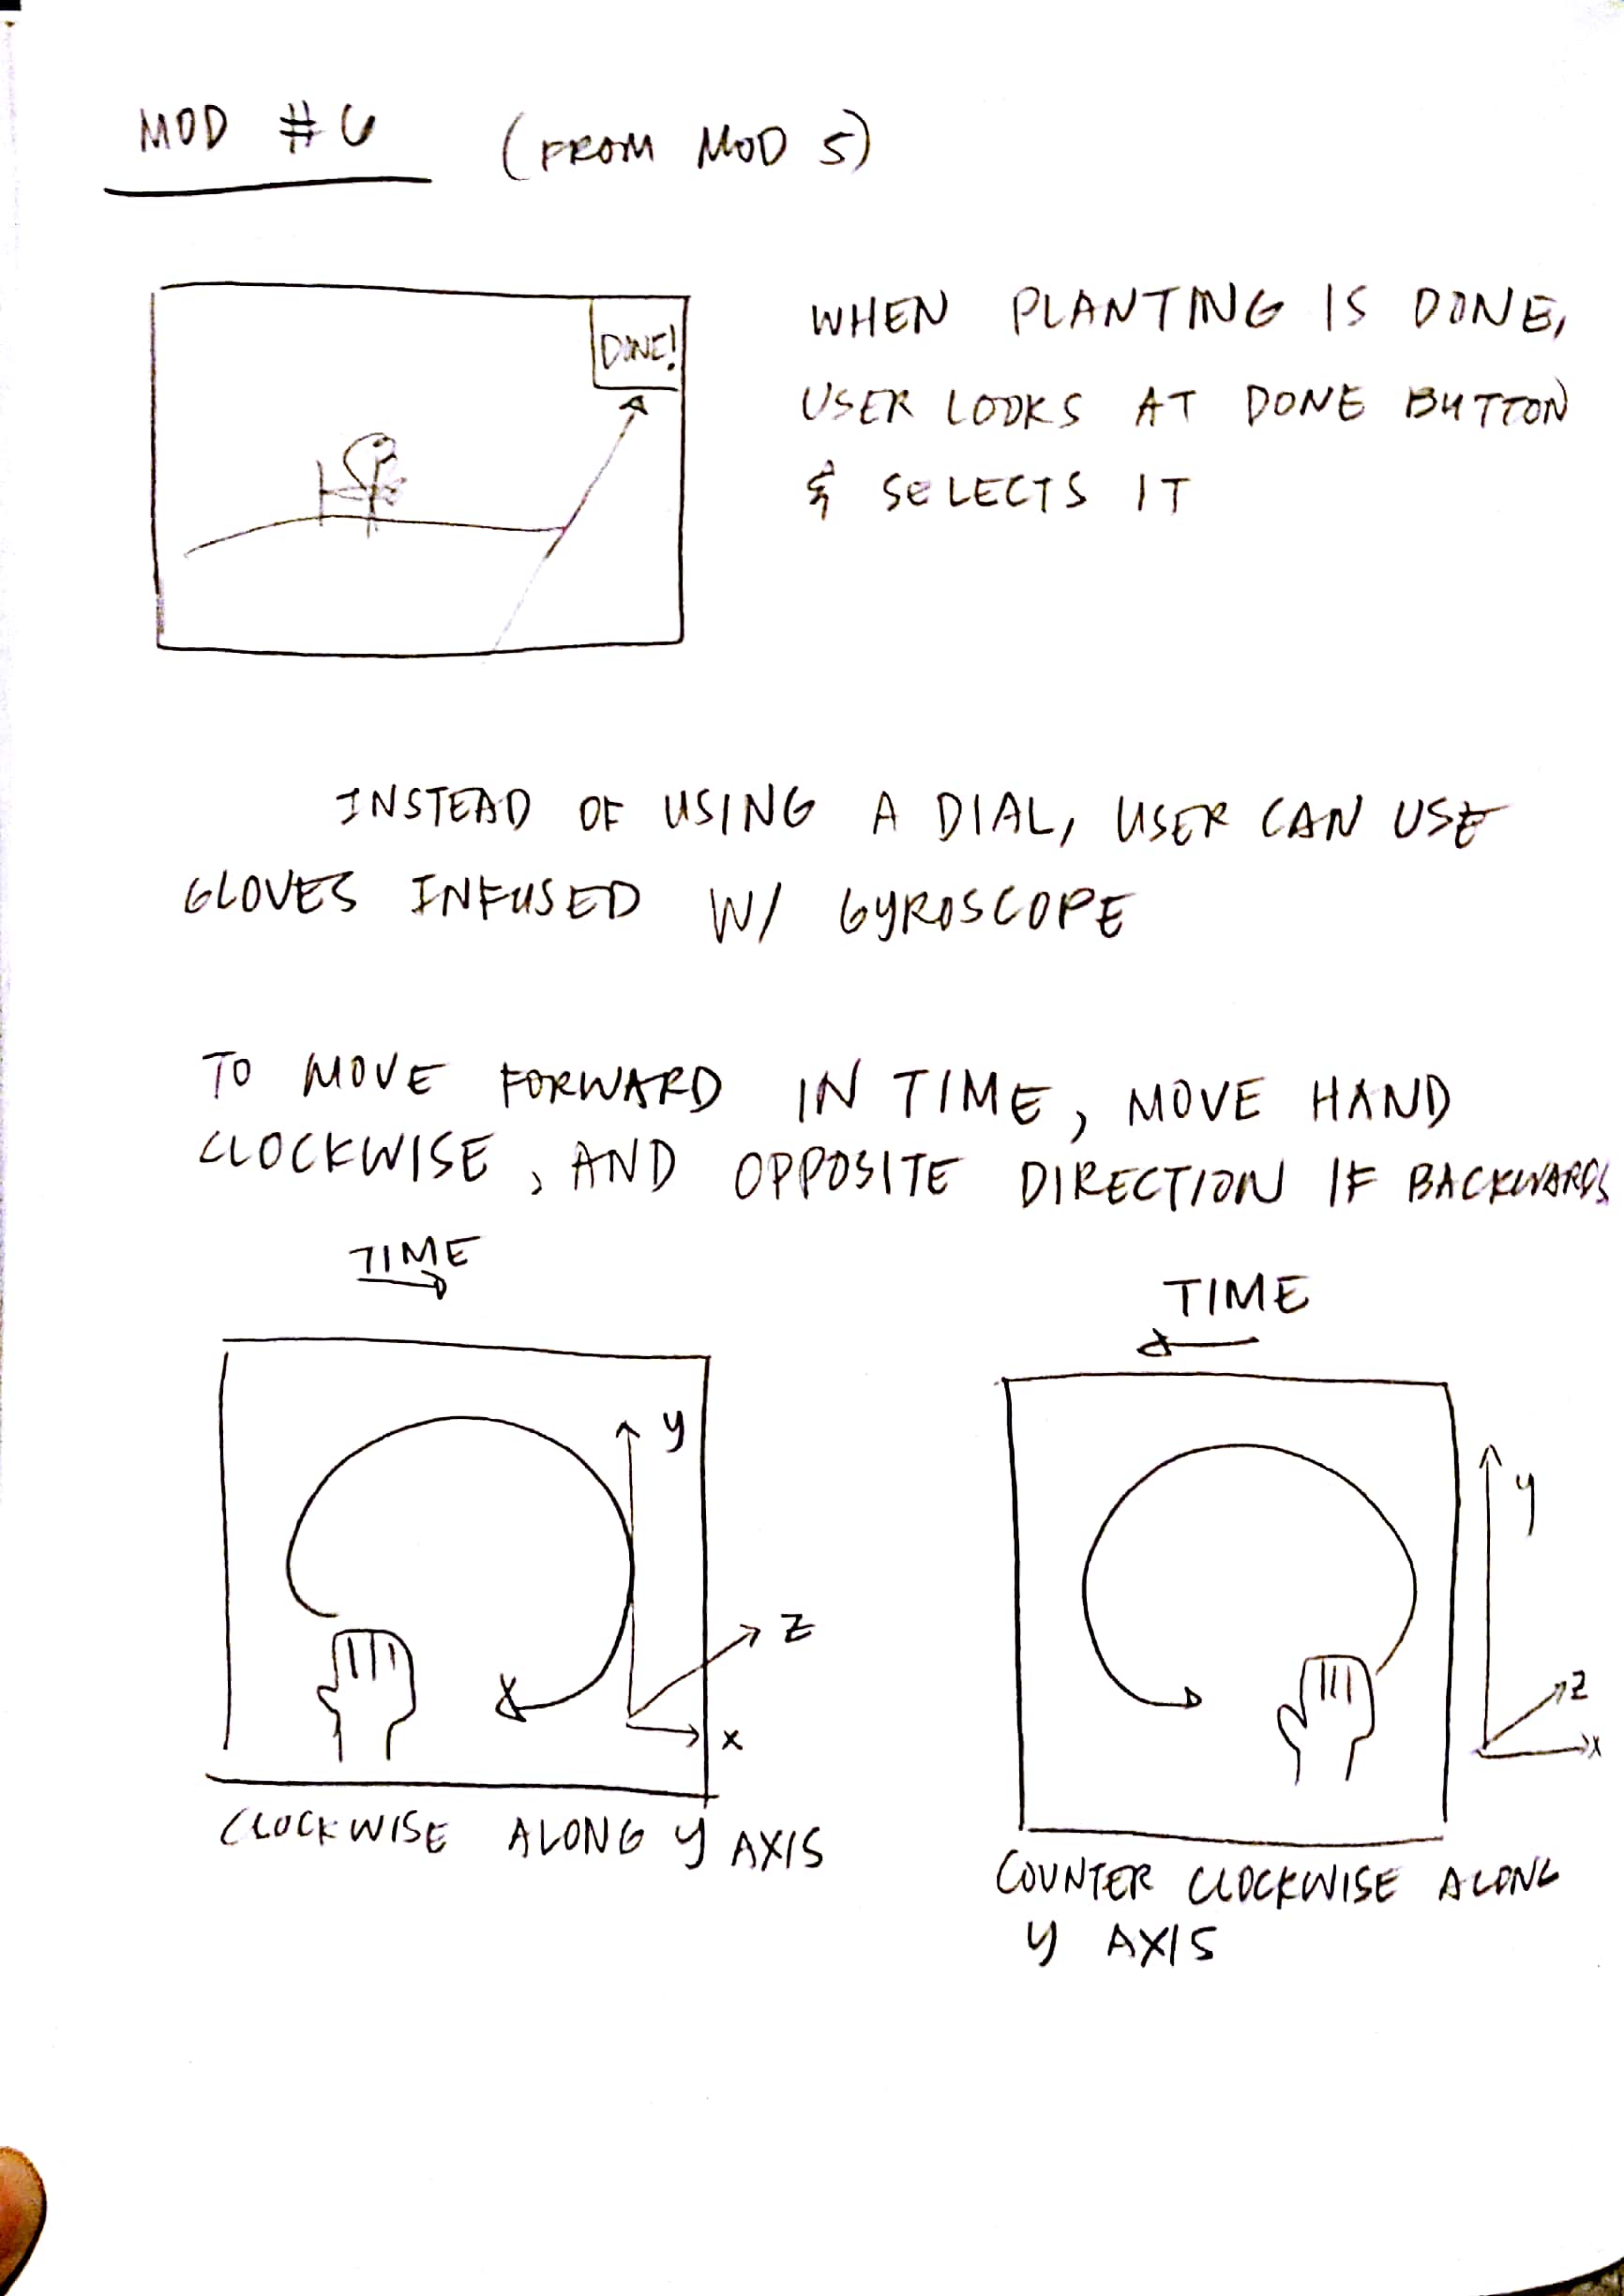 MOD #6 (FROM MOD 5)
DONE!
WHEN PLANTING IS DONE,
USER LOOKS AT DONE BUTTON
& SELECTS IT
INSTEAD OF USING A DIAL, USER CAN USE
GLOVES INFUSED W/ GYROSCOPE
TO MOVE FORWARD IN TIME, MOVE HAND
CLOCKWISE, AND OPPOSITE DIRECTION IF BACKWARDS
TIME
y
z
x
CLOCKWISE ALONG y AXIS
TIME
y
z
x
COUNTER CLOCKWISE ALONG
y AXIS